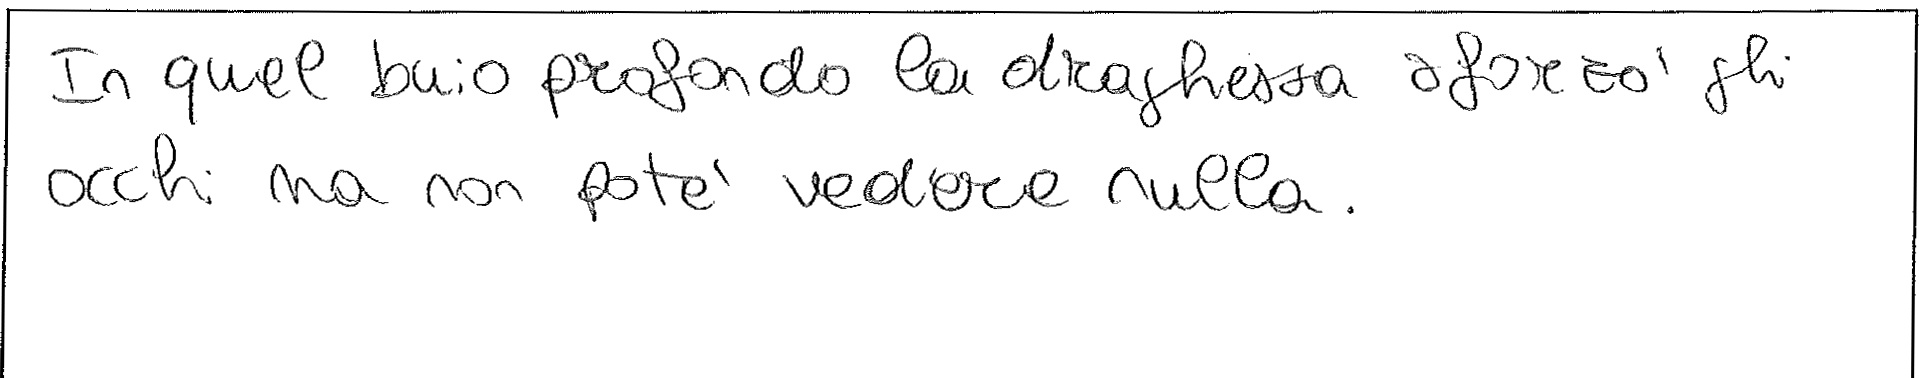 In quel buio profondo la draghessa sforzo' gli
occhi ma non pote' vedere nulla.